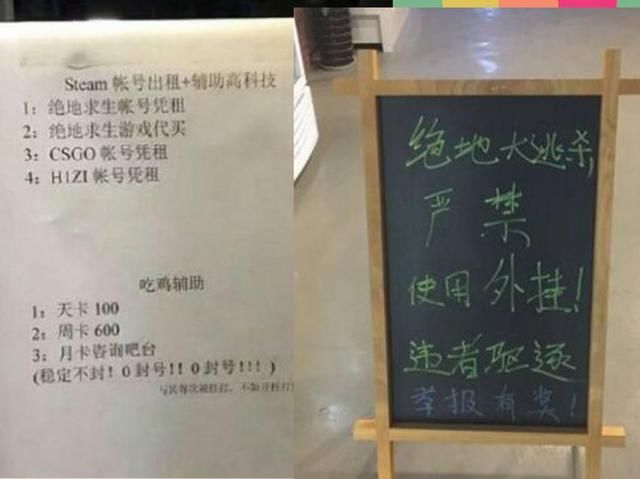 Steam 帐号出租+辅助高科技
1：绝地求生帐号凭租
2：绝地求生游戏代买
3：CSGO 帐号凭租
4：H1Z1 帐号凭租
吃鸡辅助
1：天卡 100
2：周卡 600
3：月卡咨询吧台
(稳定不封！0 封号！！0 封号！！！)
绝地大逃杀,
严禁
使用外挂！
违者驱逐
举报有奖！